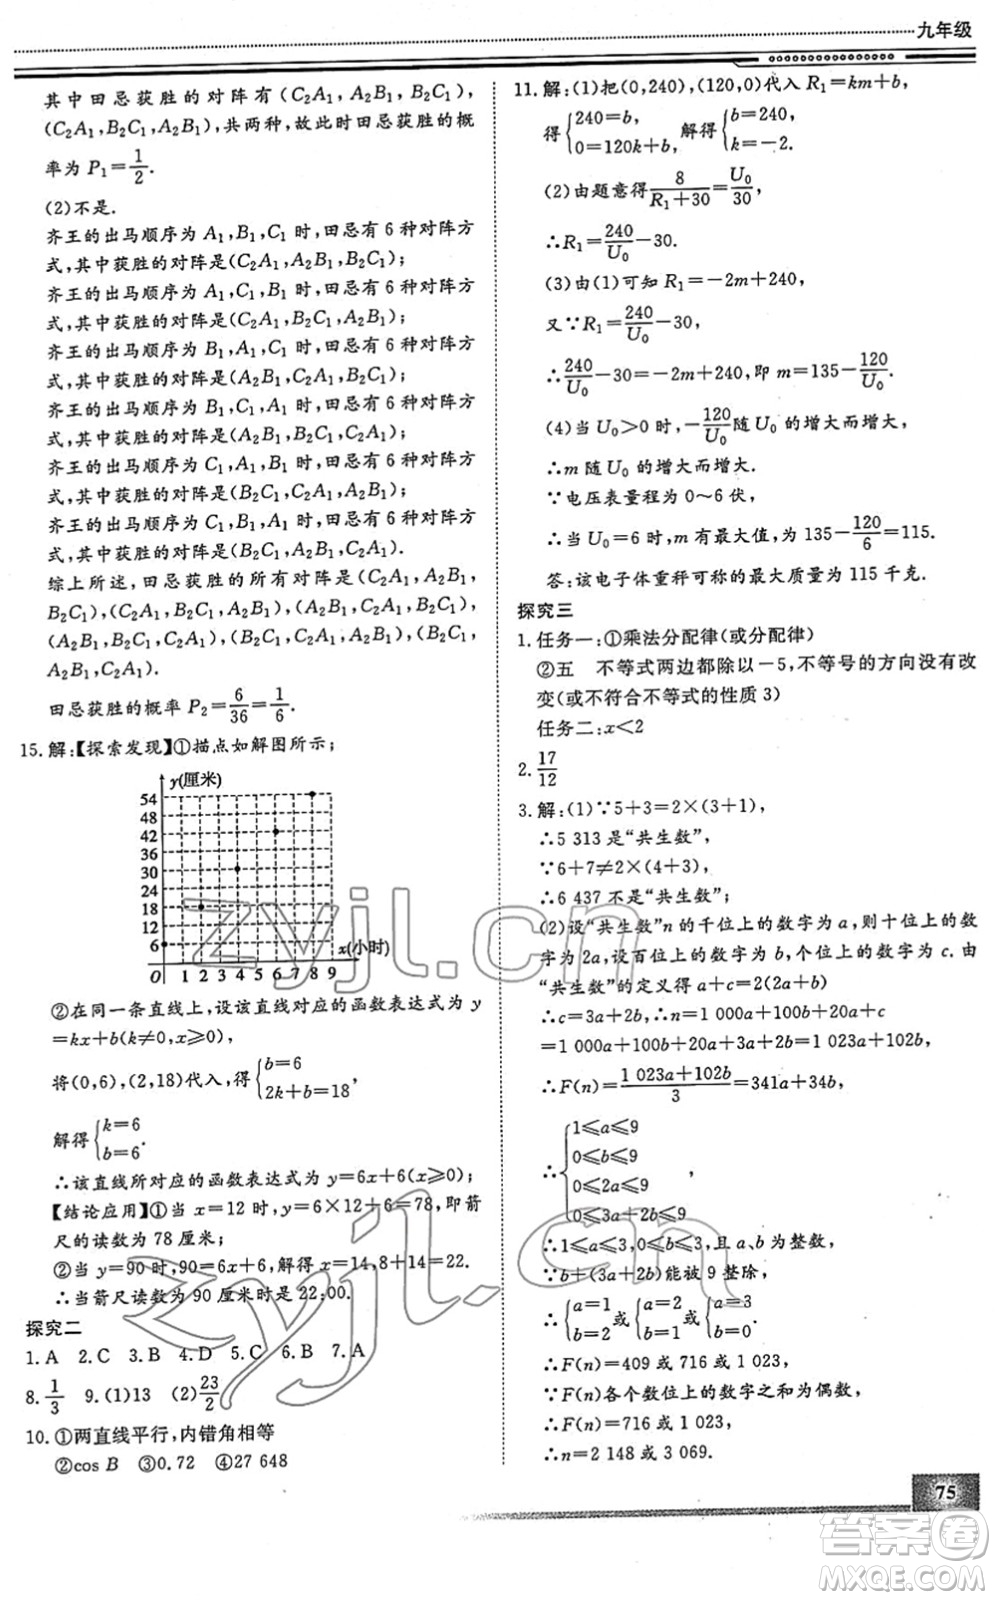 九年级
其中田忌获胜的对阵有(C₂A₁,A₂B₁,B₂C₁),
(C₂A₁,B₂C₁,A₂B₁),共两种,故此时田忌获胜的概
率为 P₁=1/2.
(2)不是.
齐王的出马顺序为 A₁,B₁,C₁ 时,田忌有 6 种对阵方
式,其中获胜的对阵是(C₂A₁,A₂B₁,B₂C₁);
齐王的出马顺序为 A₁,C₁,B₁ 时,田忌有 6 种对阵方
式,其中获胜的对阵是(C₂A₁,B₂C₁,A₂B₁);
齐王的出马顺序为 B₁,A₁,C₁ 时,田忌有 6 种对阵方
式,其中获胜的对阵是(A₂B₁,C₂A₁,B₂C₁);
齐王的出马顺序为 B₁,C₁,A₁ 时,田忌有 6 种对阵方
式,其中获胜的对阵是(A₂B₁,B₂C₁,C₂A₁);
齐王的出马顺序为 C₁,A₁,B₁ 时,田忌有 6 种对阵方
式,其中获胜的对阵是(B₂C₁,C₂A₁,A₂B₁);
齐王的出马顺序为 C₁,B₁,A₁ 时,田忌有 6 种对阵方
式,其中获胜的对阵是(B₂C₁,A₂B₁,C₂A₁).
综上所述,田忌获胜的所有对阵是(C₂A₁,A₂B₁,
B₂C₁),(C₂A₁,B₂C₁,A₂B₁),(A₂B₁,C₂A₁,B₂C₁),
(A₂B₁,B₂C₁,C₂A₁),(B₂C₁,C₂A₁,A₂B₁),(B₂C₁,
A₂B₁,C₂A₁).
田忌获胜的概率 P₂=6/36=1/6.
15.解:【探索发现】①描点如解图所示;
y(厘米)
54
48
42
36
30
24
18
12
6
x(小时)
O 1 2 3 4 5 6 7 8 9
②在同一条直线上,设该直线对应的函数表达式为 y
=kx+b(k≠0,x≥0),
将(0,6),(2,18)代入,得{b=6 2k+b=18,
解得{k=6 b=6.
∴该直线所对应的函数表达式为 y=6x+6(x≥0);
【结论应用】①当 x=12 时,y=6×12+6=78,即箭
尺的读数为 78 厘米;
②当 y=90时,90=6x+6,x=14,8+14=22.
∴当箭尺读数为 90 厘米时是22:00.
探究二
1.A 2.C 3.B 4.D 5.C 6.B 7.A
8.1/3 9.(1)13 (2)23/2
10.①两直线平行,内错角相等
②cos B ③0.72 ④27 648
11.解:(1)把(0,240),(120,0)代入 R₁=km+b,
得{240=b, 0=120k+b, 解得{b=240, k=-2.
(2)由题意得8/(R₁+30)=U₀/30,
∴R₁=240/U₀-30.
(3)由(1)可知 R₁=-2m+240,
又∵R₁=240/U₀-30,
∴240/U₀-30=-2m+240,即 m=135-120/U₀.
(4)当 U₀>0 时,-120/U₀随 U₀ 的增大而增大,
∴m 随 U₀ 的增大而增大.
∵电压表量程为 0~6 伏,
∴当 U₀=6 时,m 有最大值,为 135-120/6=115.
答:该电子体重秤可称的最大质量为 115 千克.
探究三
1.任务一:①乘法分配律(或分配律)
②五 不等式两边都除以-5,不等号的方向没有改
变(或不符合不等式的性质 3)
任务二:x<2
2.17/12
3.解:(1)∵5+3=2×(3+1),
∴5 313 是“共生数”;
∵6+7≠2×(4+3),
∴6 437 不是“共生数”;
(2)设“共生数”n 的千位上的数字为 a,则十位上的数
字为 2a,设百位上的数字为 b,个位上的数字为 c,由
“共生数”的定义得 a+c=2(2a+b)
∴c=3a+2b,∴n=1 000a+100b+20a+c
=1 000a+100b+20a+3a+2b=1 023a+102b,
∴F(n)=(1 023a+102b)/3=341a+34b,
∴{1≤a≤9 0≤b≤9 0≤2a≤9 0≤3a+2b≤9,
∴1≤a≤3,0≤b≤3,且 a、b 为整数,
∵b+(3a+2b)能被 9 整除,
∴{a=1 b=2 或{a=2 b=1 或{a=3 b=0,
∴F(n)=409 或 716 或 1 023,
∵F(n)各个数位上的数字之和为偶数,
∴F(n)=716 或 1 023,
∴n=2 148 或 3 069.
75
zyjl.cn
zyjl.cn
答案卷
MXQE.COM